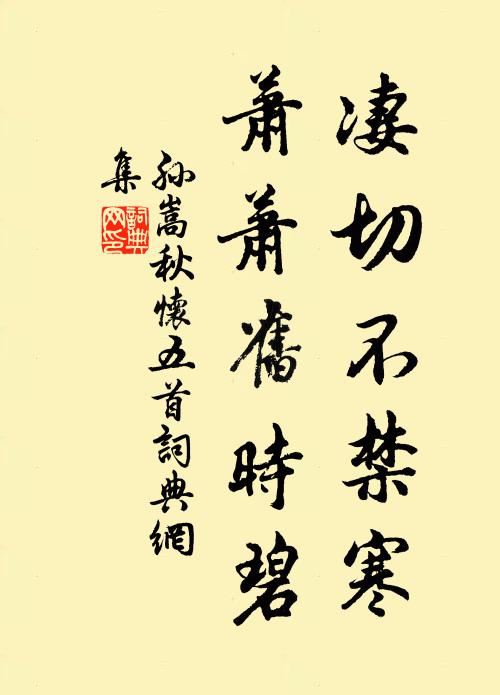 凄切不禁寒
蕭蕭舊時碧
孫嵩秋懷五首詞典網
集
詞典
网印